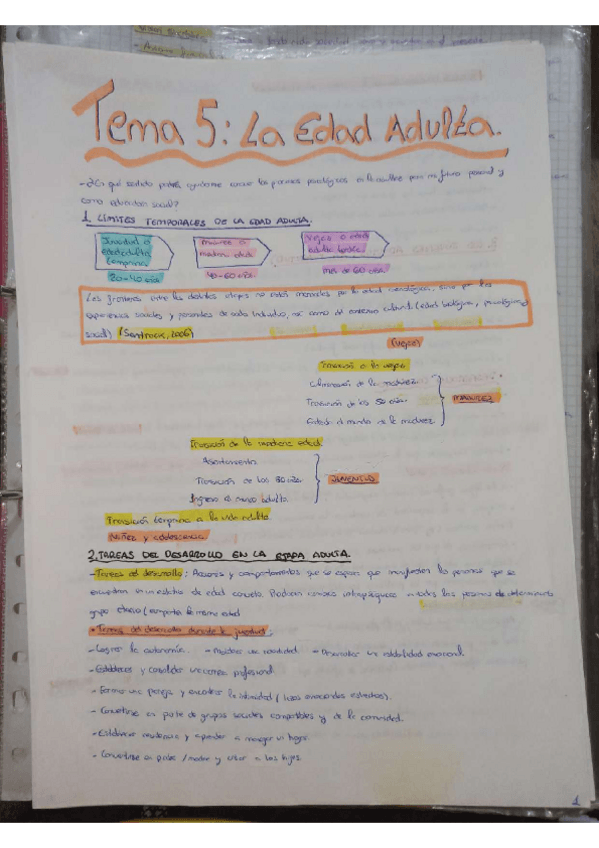 Tema 5: La Edad Adulta.
- ¿En qué sentido podría ayudarme conocer los procesos psicológicos en la adultez para mi futuro personal y
como educadora social?
1. LÍMITES TEMPORALES DE LA EDAD ADULTA.
Juventud o edad adulta temprana
20-40 años
Madurez o mediana edad
40-60 años
Vejez o edad adulta tardía
más de 60 años
Las fronteras entre las distintas etapas no están marcadas por la edad cronológica, sino por las
experiencias sociales y personales de cada individuo, así como el contexto cultural. (edad biológica, psicológica y
social) (Santrock, 2006)
(vejez)
Transición a la vejez
Culminación de la madurez
Transición de los 50 años
MADUREZ
Entrada al mundo de la madurez
Transición de la mediana edad
Asentamiento
Transición de los 30 años
JUVENTUD
Ingreso al mundo adulto.
Transición temprana a la vida adulta
Niñez y adolescencia.
2. TAREAS DEL DESARROLLO EN LA ETAPA ADULTA.
- Tareas del desarrollo: Acciones y comportamientos que se espera que manifiesten las personas que se
encuentran en un estadio de edad concreto. Podrían considerarse en todas las personas de determinado
grupo etario (comparte la misma edad
• Tareas del desarrollo durante la juventud:
- Lograr la autonomía. - Moldear una identidad. - Desarrollar una estabilidad emocional.
- Establecer y consolidar una carrera profesional.
- Formar una pareja y encontrar la intimidad (lazos emocionales estrechos).
- Convertirse en parte de grupos sociales compatibles y de la comunidad.
- Establecer residencia y aprender a manejar un hogar.
- Convertirse en padre/madre y criar a los hijos
1